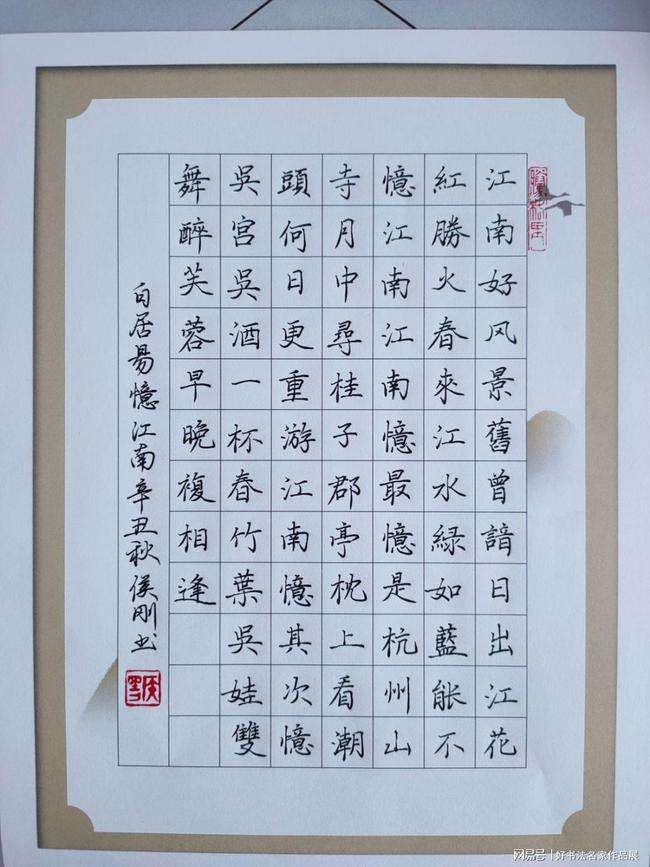 江南好风景舊曾諳日出江花
紅勝火春來江水綠如藍能不
憶江南江南憶最憶是杭州山
寺月中尋桂子郡亭枕上看潮
頭何日更重游江南憶其次憶
吳宮吳酒一杯春竹葉吳娃雙
舞醉芙蓉早晚複相逢
白居易憶江南辛丑秋侯剛书
网易号 | 好书法名家作品展